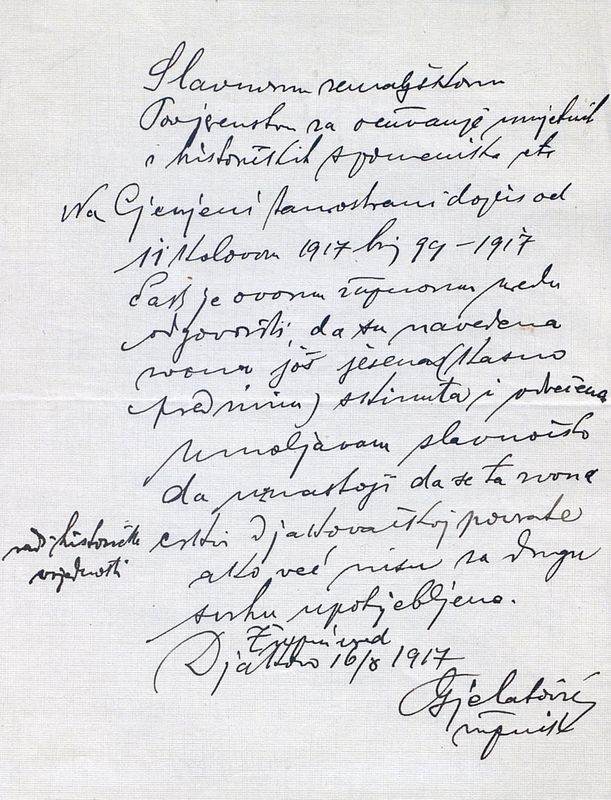 Slavnom zemaljskom
Povjerenstvu za očuvanje umjetnih
i historičkih spomenika
Na Cjenjeni tamostrani dopis od
11 Kolovoza 1917 broj 99-1917
Čast je ovom župnom uredu
odgovoriti, da su navedena
zvona još jesenas (Kasno
pred zimu) skinuta i odvežena
Umoljavam slavnoisto
da uznastoji da se ta zvona
radi historičke
vrijednosti
crkvi Djakovačkoj povrate
ako već nisu za drugu
svrhu upotrjebljena.
Župni ured
Djakovo 16/8 1917
župnik